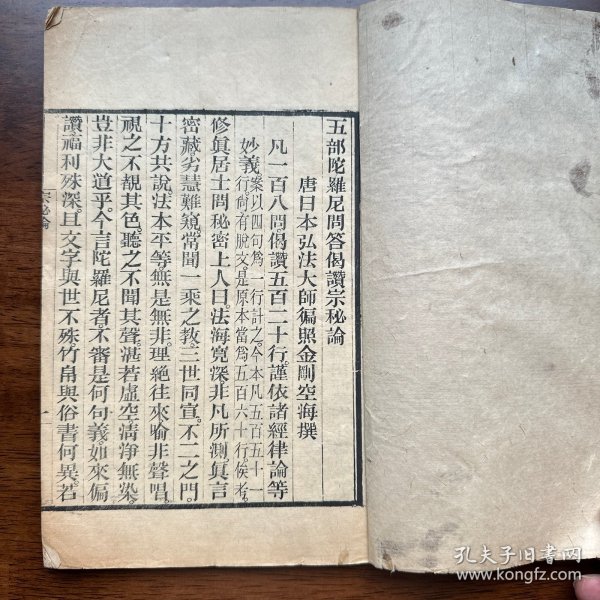 五部陀羅尼問答偈讚宗秘論
唐日本弘法大師徧照金剛空海撰
凡一百八問偈讚五百二十行。謹依諸經律論等
妙義案以四句爲一行計之。今本凡五百五十一
行。尙有脫文。是原本當爲五百六十行。俟考。
修眞居士問秘密上人曰。法海寬深非凡所測。眞言
密藏劣慧難窺。常聞一乘之敎。三世同宣。不二之門。
十方共說。法本平等。無是無非。理絶往來。喻非聲唱。
視之不覩其色。聽之不聞其聲。湛若虛空。淸淨無染。
豈非大道乎。今言陀羅尼者。不審是何句義。如來偏
讚。福利殊深。且文字與世不殊。竹帛與俗書何異。若
宗秘論
一
孔夫子旧书网
www.kongfz.com